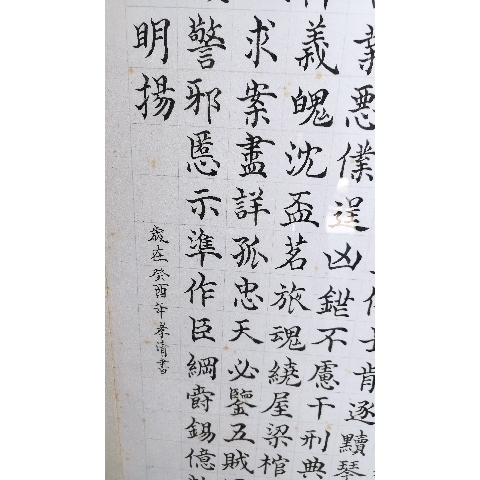 肯逐黷琴
惡僕逞凶錯不慮干刑典
義魄沈盃茗旅魂繞屋梁棺
求案盡詳孤忠天必鑒五賊
警邪慝示準作臣綱爵錫億
明揚
歲在癸酉年孝清書